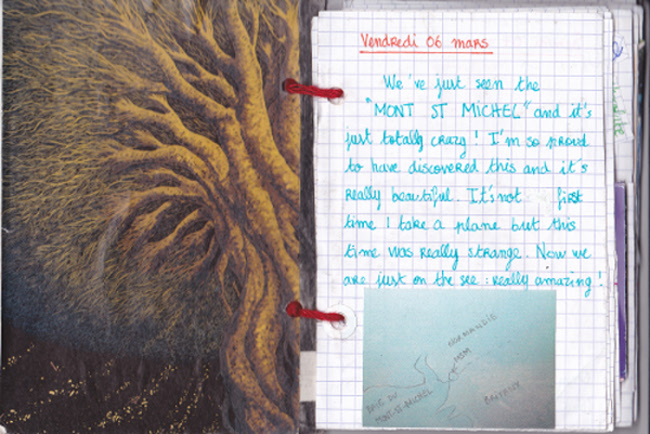 Vendredi 06 mars
We've just seen the
"MONT ST MICHEL" and it's
just totally crazy! I'm so proud
to have discovered this and it's
really beautiful. It's not first
time I take a plane but this
time was really strange. Now we
are just on the see : really amazing!
NORMANDIE
MSM
BAIE DU
MONT-ST-MICHEL
BRITTANY